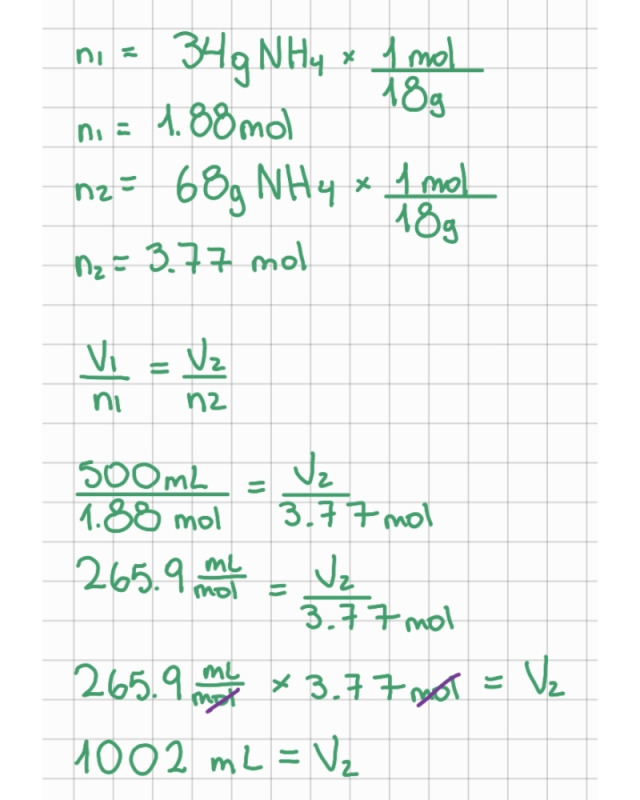 n₁ = 34g NH₄ × 1 mol / 18g
n₁ = 1.88mol
n₂ = 68g NH₄ × 1 mol / 18g
n₂ = 3.77 mol
V₁ / n₁ = V₂ / n₂
500mL / 1.88 mol = V₂ / 3.77 mol
265.9 mL/mol = V₂ / 3.77 mol
265.9 mL/mol × 3.77 mol = V₂
1002 mL = V₂